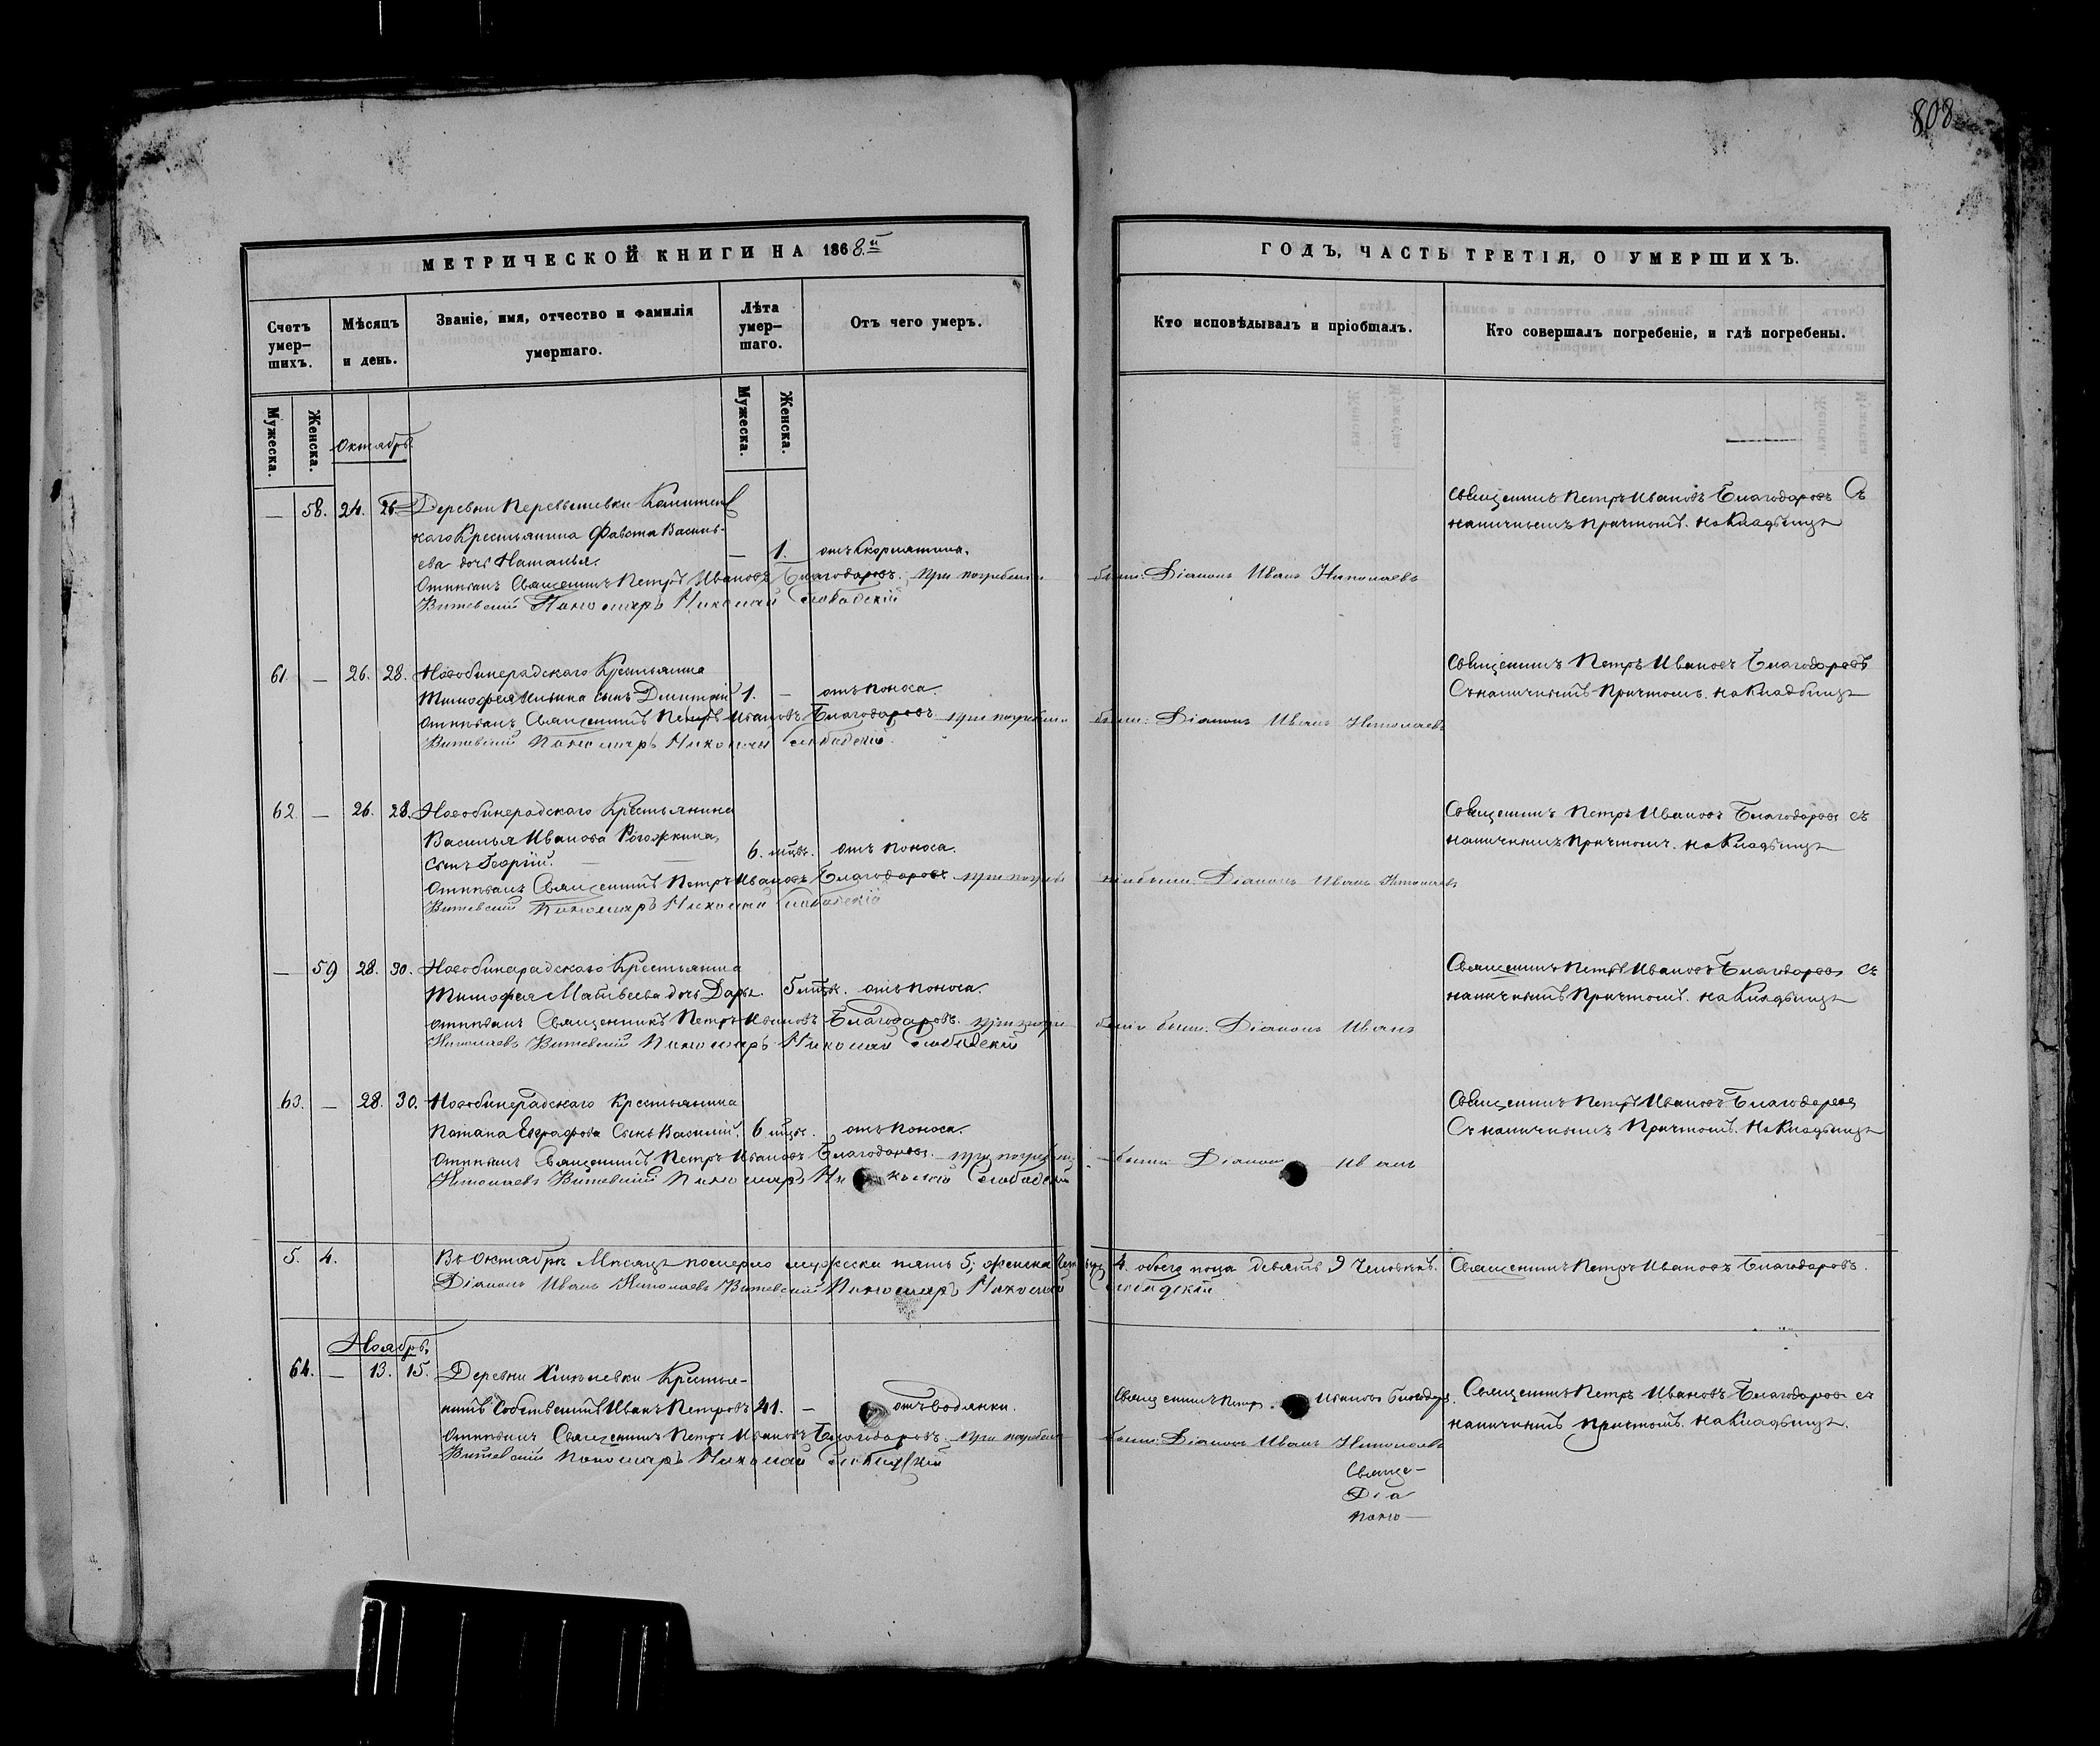 808
МЕТРИЧЕСКОЙ КНИГИ НА 1868.й
ГОДЪ, ЧАСТЬ ТРЕТІЯ, О УМЕРШИХЪ.
Счетъ умер–шихъ.
Мѣсяцъ и день.
Званіе, имя, отчество и фамилія умершаго.
Лѣта умер–шаго.
Отъ чего умеръ.
Кто исповѣдывалъ и пріобщалъ.
Кто совершалъ погребеніе, и гдѣ погребены.
Мужеска.
Женска.
Мужеска.
Женска.
Октябрь
— 58. 24. 26. Деревни
каго Крестьянина Фавста Василь-
ева дочь Наталья. — 1.
Священникъ Петръ Ивановъ Благодаровъ Съ
наличнымъ причтомъ. на Кладбищѣ
Отпѣвалъ Священникъ Петръ Ивановъ Благодаровъ. при погребеніи были: Діаконъ Иванъ Николаевъ
Витевскій Пономарь Николай Слободскій
61. — 26. 28. Новобинарадскаго Крестьянина
Тимофея Ильина сынъ Димитрій 1. — отъ поноса.
Священникъ Петръ Ивановъ Благодаровъ
Съ наличнымъ Причтомъ. на Кладбищѣ
Отпѣвалъ Священникъ Петръ Ивановъ Благодаровъ при погребеніи были: Діаконъ Иванъ Николаевъ
Витевскій Пономарь Николай Слободскій.
62. — 26. 28. Новобинарадскаго Крестьянина
Василья Иванова Рогожкина,
сынъ Георгій. 6. мцов. отъ поноса.
Священникъ Петръ Ивановъ Благодаровъ съ
наличнымъ Причтомъ. на Кладбищѣ
Отпѣвалъ Священникъ Петръ Ивановъ Благодаровъ при погребеніи были. Діаконъ Иванъ Николаевъ
Витевскій Пономарь Николай Слободскій
— 59 28. 30. Новобинарадскаго Крестьянина
Тимофея Матвѣева дочь Дарья. 5 мцов. отъ поноса.
Священникъ Петръ Ивановъ Благодаровъ съ
наличнымъ Причтомъ. на Кладбищѣ
Отпѣвалъ Священникъ Петръ Ивановъ Благодаровъ. при погребеніи были. Діаконъ Иванъ
Николаевъ Витевскій Пономарь Николай Слободскій
63. — 28. 30. Новобинарадскаго Крестьянина
Потапа Евграфова Сынъ Василій. 6 мцов. отъ поноса.
Священникъ Петръ Ивановъ Благодаровъ
Съ наличнымъ Причтомъ. на Кладбищѣ
Отпѣвалъ Священникъ Петръ Ивановъ Благодаровъ. при погребеніи были Діаконъ Иванъ
Николаевъ Витевскій Пономарь Николай Слободскій
5. 4. Въ Октябрѣ Мѣсяцѣ померло мужеска пять 5; женска четыре 4. обоего пола девять 9 Человѣкъ. Священникъ Петръ Ивановъ Благодаровъ.
Діаконъ Иванъ Николаевъ Витевскій Пономарь Николай Слободскій
Ноябрь.
64. — 13. 15. Деревни Крестья-
нинъ Собственникъ Иванъ Петровъ 41. — отъ водянки.
Священникъ Петръ Ивановъ Благодаровъ.
Священникъ Петръ Ивановъ Благодаровъ съ
наличнымъ причтомъ. на Кладбищѣ.
Отпѣвалъ Священникъ Петръ Ивановъ Благодаровъ. при погребеніи были: Діаконъ Иванъ Николаевъ
Витевскій Пономарь Николай Слободскій
Свяще-
Діа
Поно—